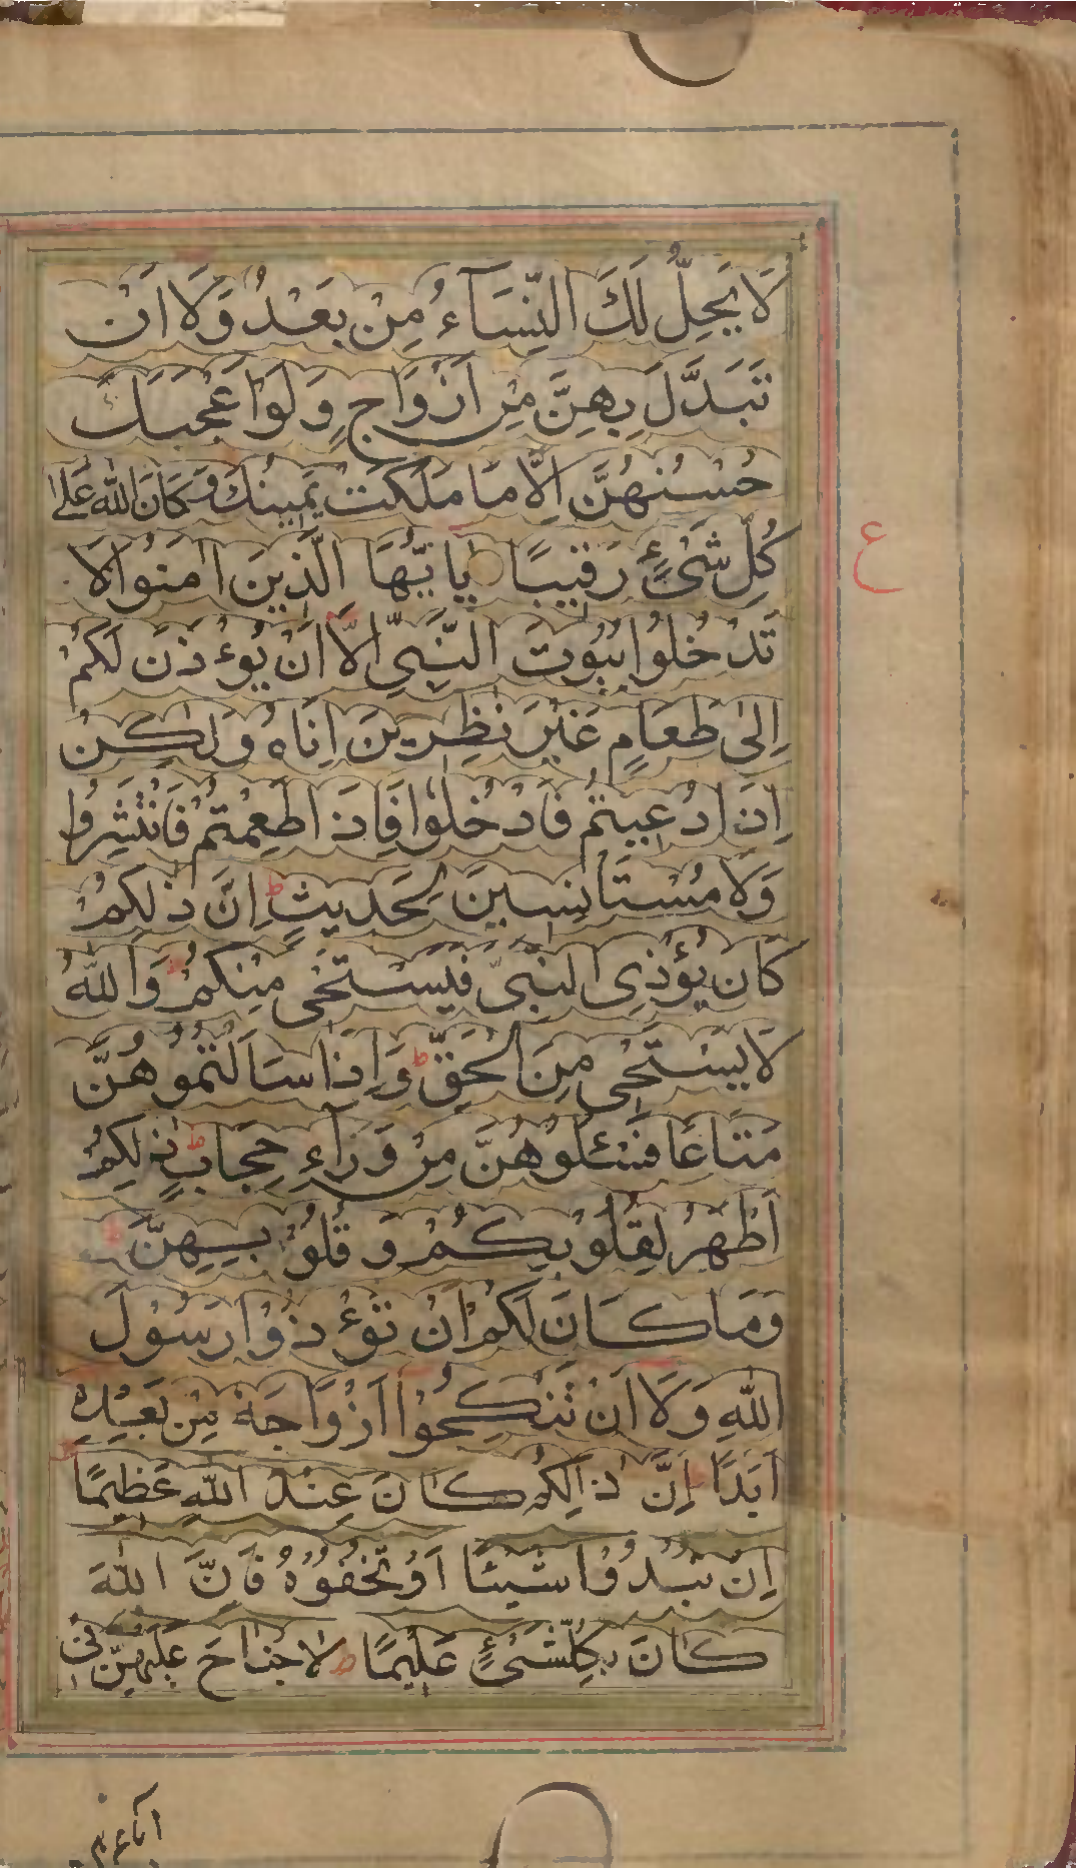 لَا يَحِلُّ لَكَ النِّسَآءُ مِنْ بَعْدُ وَلَا اَنْ
تَبَدَّلَ بِهِنَّ مِنْ اَزْوَاجٍ وَلَوْ اَعْجَبَكَ
حُسْنُهُنَّ اِلَّا مَا مَلَكَتْ يَمِينُكَ وَكَانَ اللّٰهُ عَلٰى
كُلِّ شَىْءٍ رَقِيبًا يَا اَيُّهَا الَّذِينَ اٰمَنُوا لَا
ع
تَدْخُلُوا بُيُوتَ النَّبِىِّ اِلَّا اَنْ يُؤْذَنَ لَكُمْ
اِلٰى طَعَامٍ غَيْرَ نٰظِرِينَ اِنَاهُ وَلٰكِنْ
اِذَا دُعِيتُمْ فَادْخُلُوا فَاِذَا طَعِمْتُمْ فَانْتَشِرُوا
وَلَا مُسْتَاْنِسِينَ لِحَدِيثٍ ط اِنَّ ذٰلِكُمْ
كَانَ يُؤْذِى النَّبِىَّ فَيَسْتَحْىٖ مِنْكُمْ ط وَاللّٰهُ
لَا يَسْتَحْىٖ مِنَ الْحَقِّ ط وَاِذَا سَاَلْتُمُوهُنَّ
مَتَاعًا فَسْئَلُوهُنَّ مِنْ وَرَآءِ حِجَابٍ ط ذٰلِكُمْ
اَطْهَرُ لِقُلُوبِكُمْ وَقُلُوبِهِنَّ ط
وَمَا كَانَ لَكُمْ اَنْ تُؤْذُوا رَسُولَ
اللّٰهِ وَلَا اَنْ تَنْكِحُوْا اَزْوَاجَهُ مِنْ بَعْدِهٖ
اَبَدًا اِنَّ ذَالِكُمْ كَانَ عِنْدَ اللّٰهِ عَظِيمًا
اِنْ تُبْدُوْا شَيْئًا اَوْ تُخْفُوْهُ فَاِنَّ اللّٰهَ
كَانَ بِكُلِّ شَىْءٍ عَلِيمًا ط لَا جُنَاحَ عَلَيْهِنَّ فِى